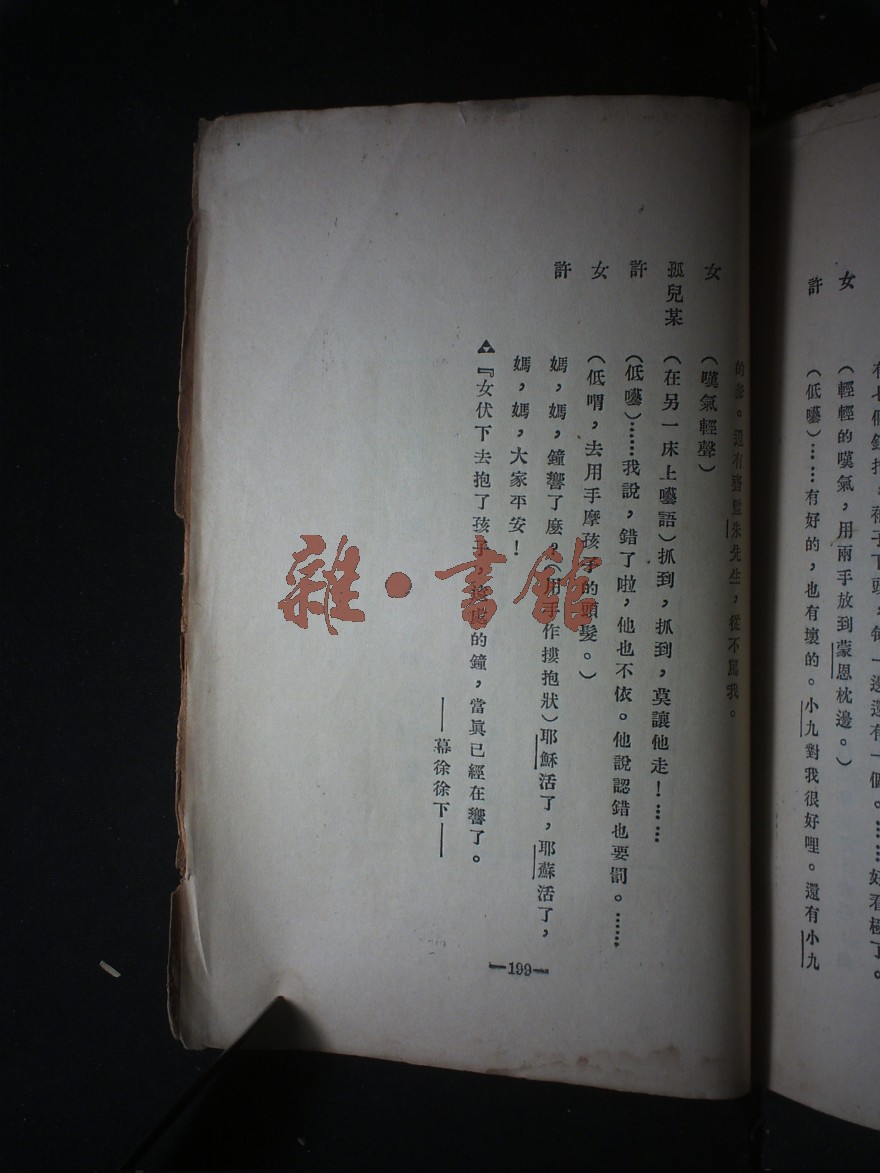 有七個
下頭，每一邊還有一個。……好看極了。
女　（輕輕的嘆氣，用兩手放到蒙恩枕邊。）
許　（低囈）……有好的，也有壞的。小九對我很好哩。還有小九
的。還有朱先生，從不罵我。
女　（嘆氣輕聲）
孤兒某　（在另一床上囈語）抓到，抓到，莫讓他走！……
許　（低囈）……我說，錯了啦，他也不依。他說認錯也要罰。……
女　（低喟，去用手摩孩子的頭髮。）
許　媽，媽，鐘響了麼？（用手作摟抱狀）耶穌活了，耶蘇活了，
媽，媽，大家平安！
『女伏下去抱了孩子，的鐘，當眞已經在響了。
——幕徐徐下——
—199—
雜·書館